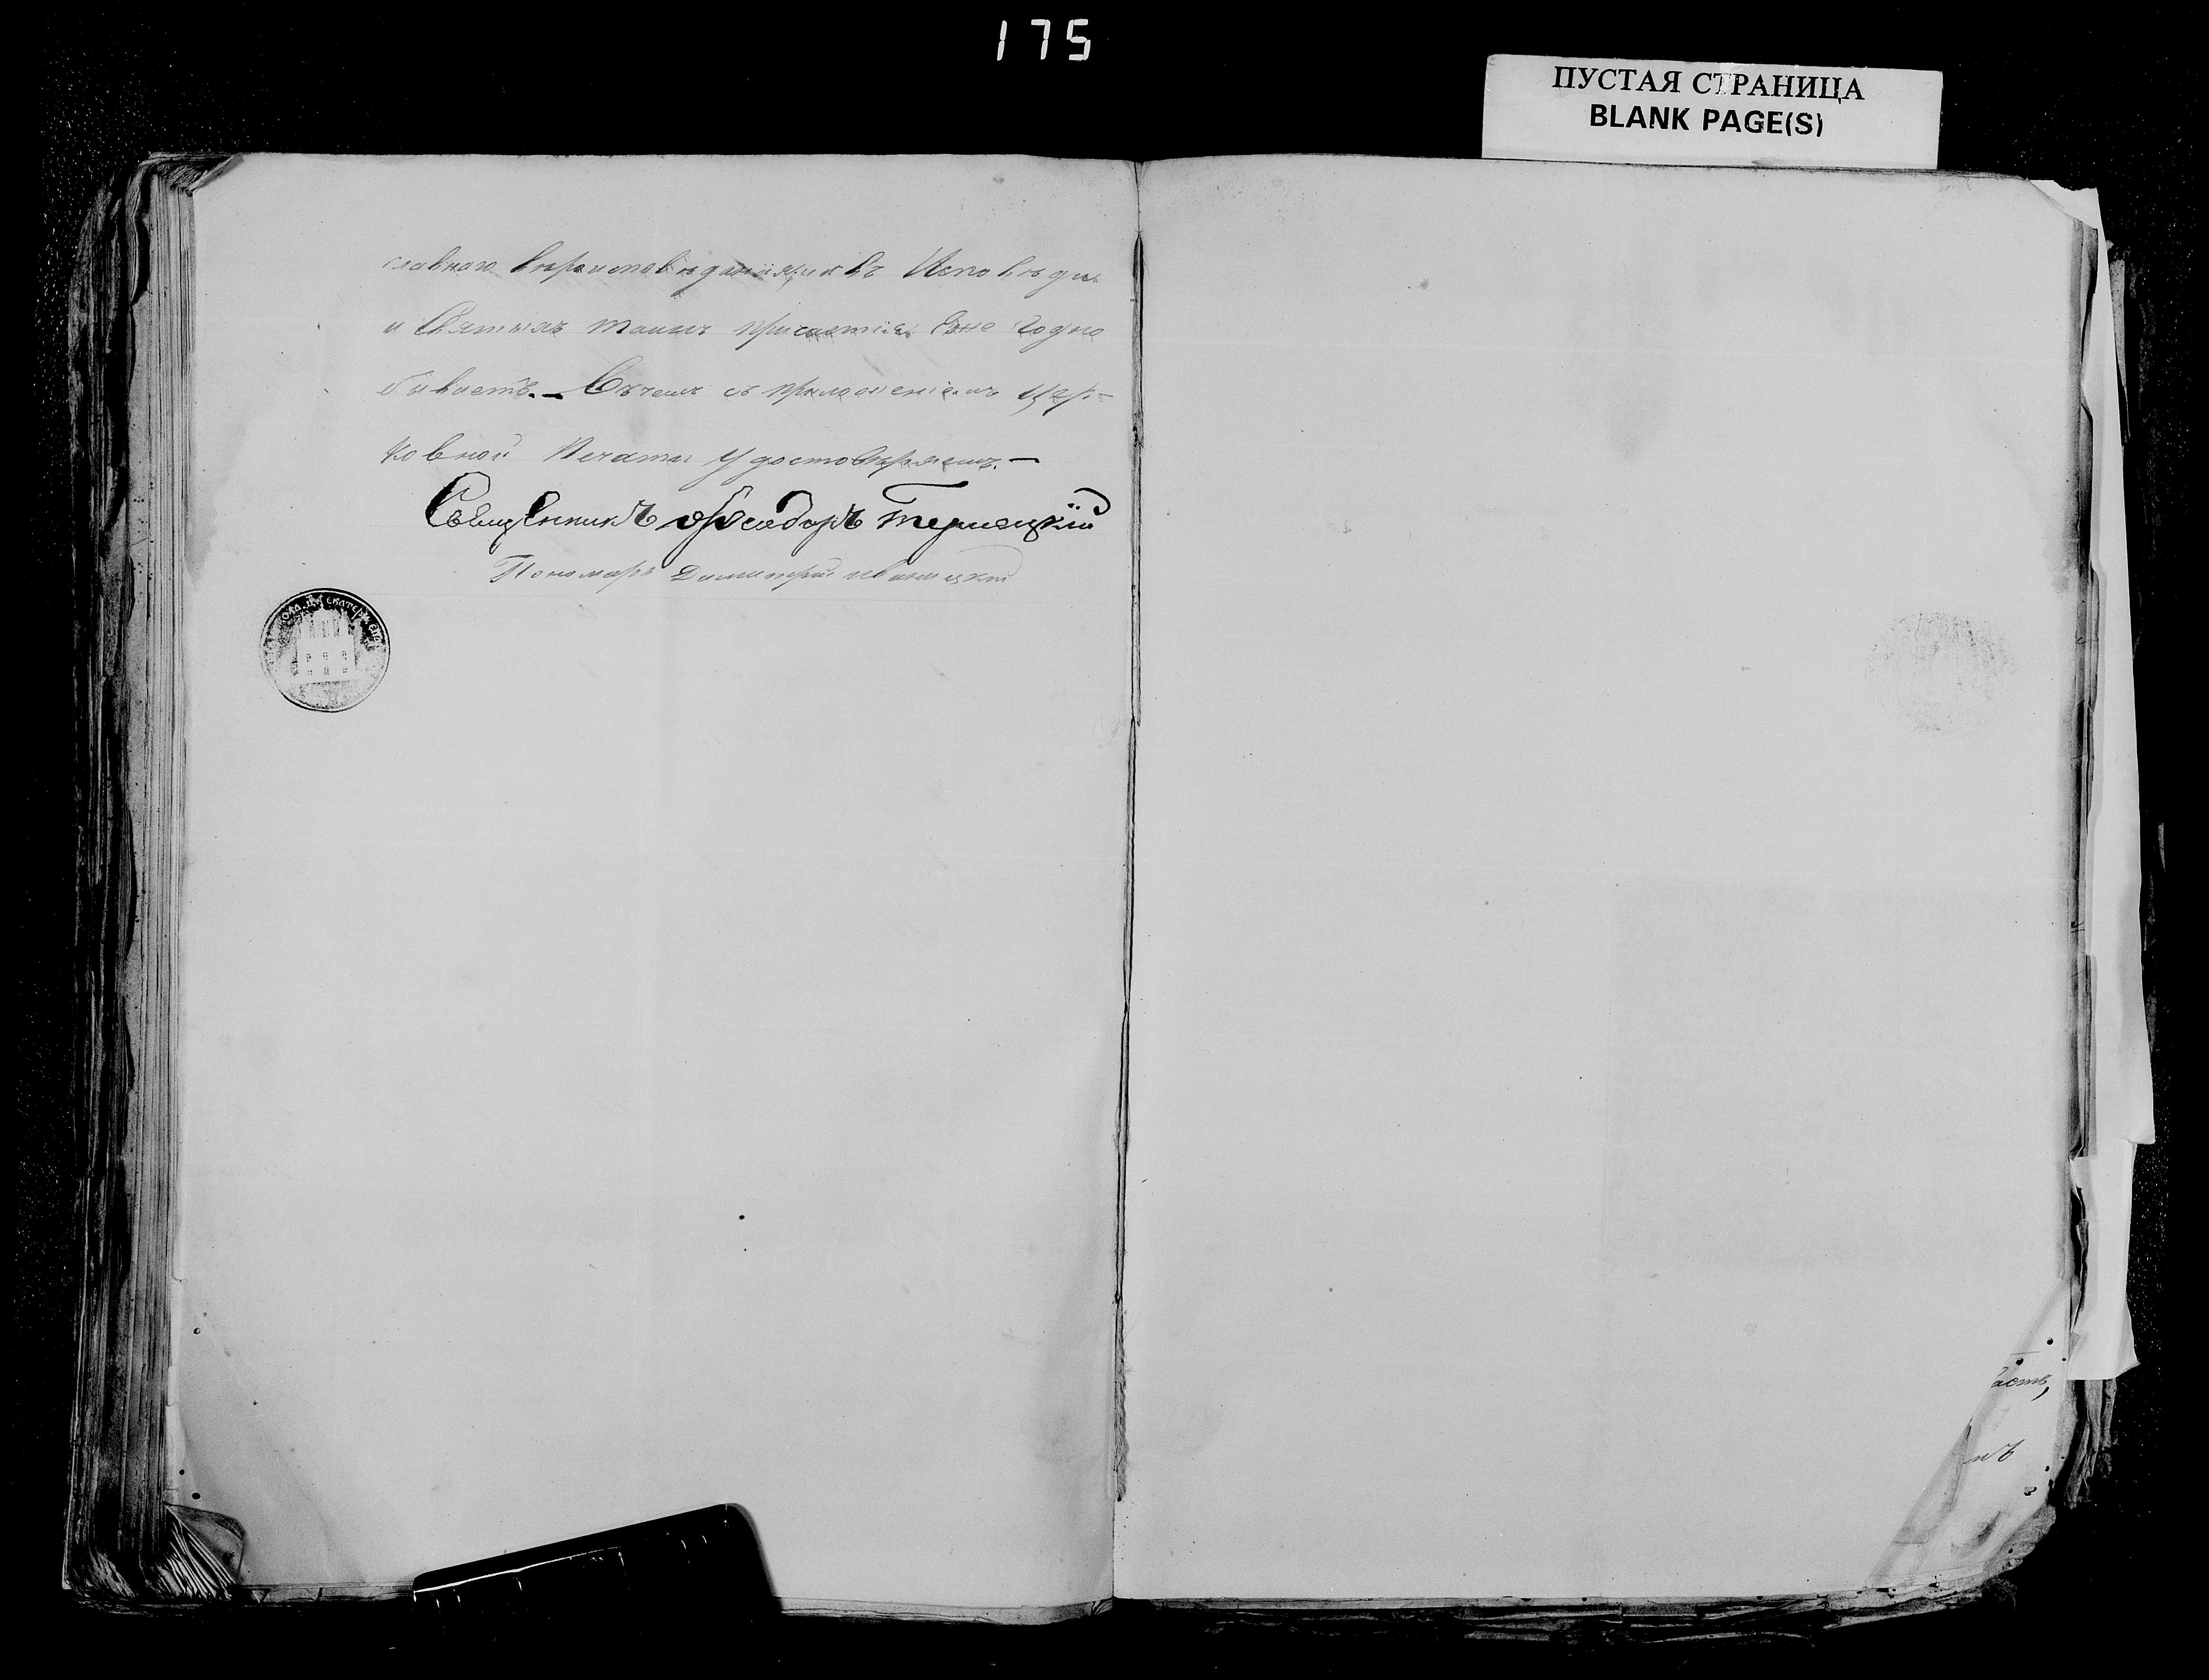 175
ПУСТАЯ СТРАНИЦА
BLANK PAGE(S)
славнаго вѣроисповѣданія, и къ Исповѣди
и Святыхъ Таинъ причастія Ежегодно
бываетъ. — Въ чемъ съ приложеніемъ цер-
ковной Печати Удостовѣряемъ. —
Священникъ Ѳеодоръ
Пономарь Димитрій
астъ,
мъ